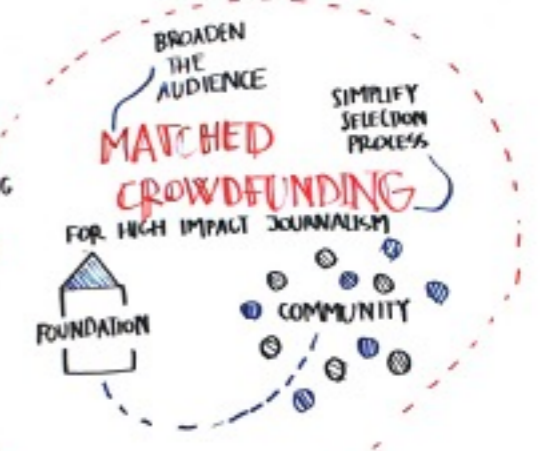 BROADEN
THE
AUDIENCE
SIMPLIFY
SELECTION
PROCESS
MATCHED
CROWDFUNDING
FOR HIGH IMPACT JOURNALISM
FOUNDATION
COMMUNITY